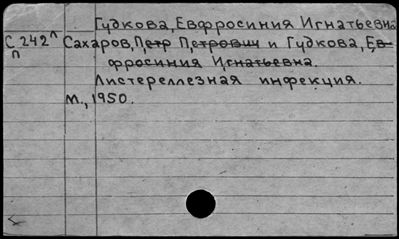 Гудкова, Евфросиния Игнатьевна
С 242 л Сахаров, Петр Петрович и Гудкова, Ев-
п фросиния Игнатьевна.
Листереллезная инфекция.
М., 1950.